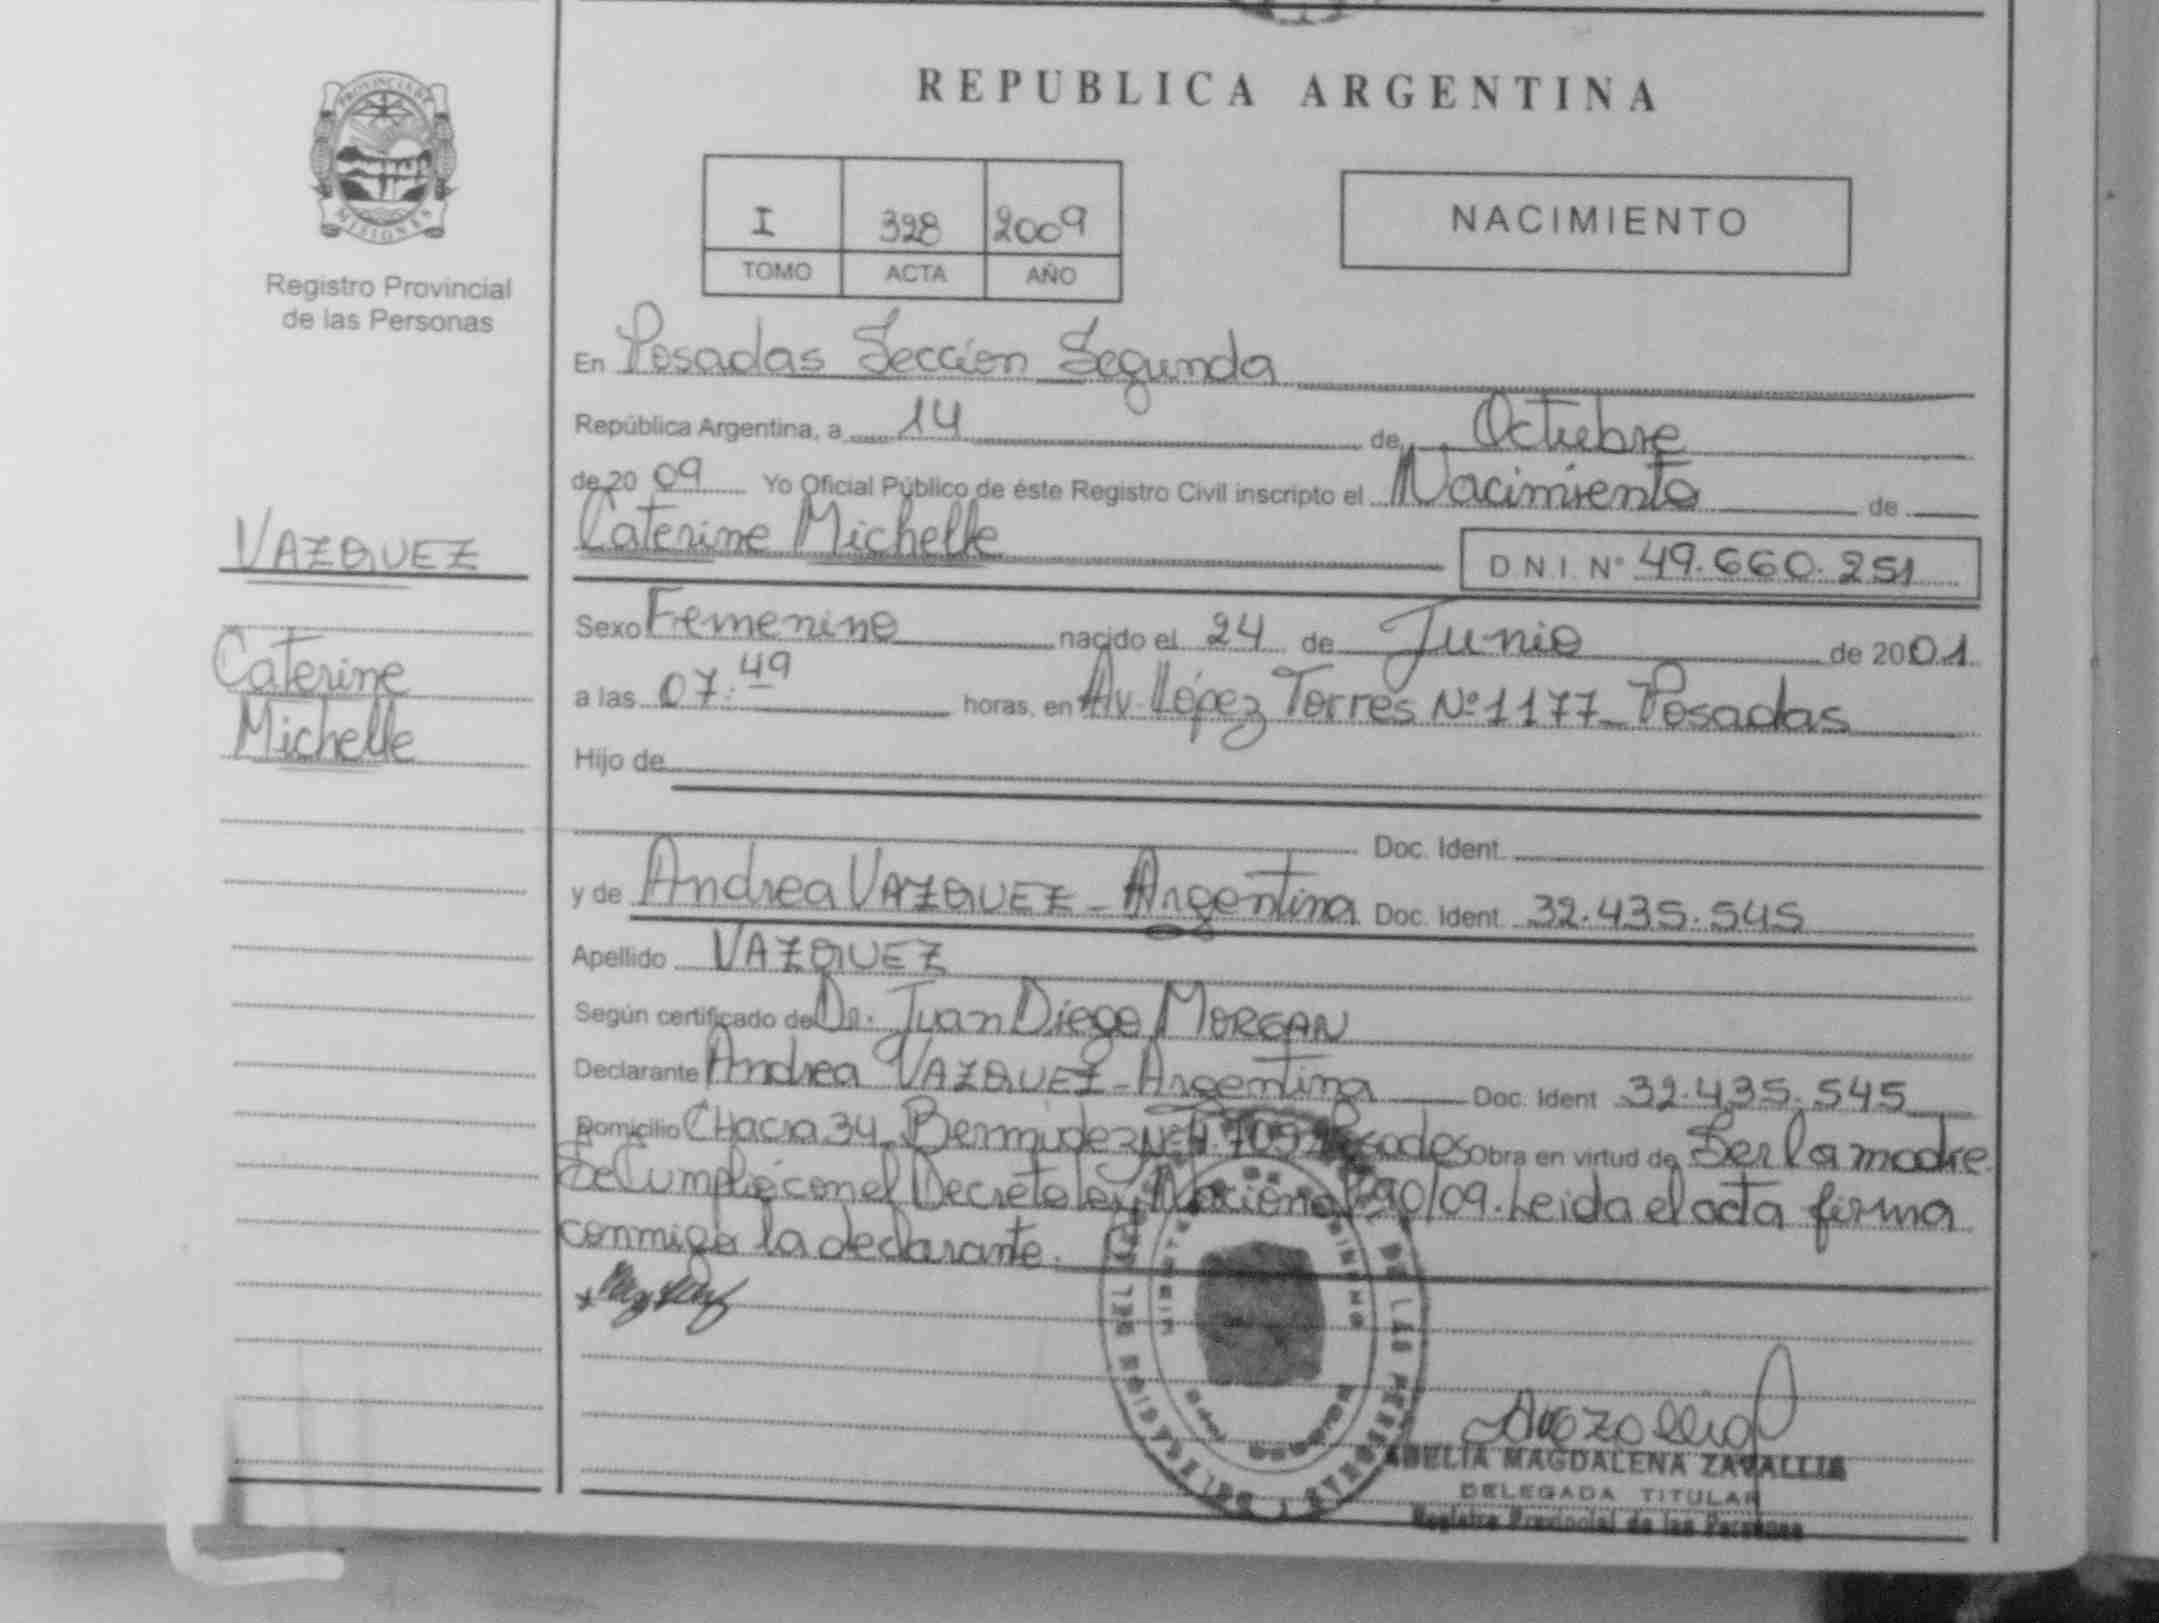 REPUBLICA ARGENTINA
PROVINCIA DE MISIONES
Registro Provincial
de las Personas
I 328 2009
TOMO ACTA AÑO
NACIMIENTO
En Posadas Sección Segunda
República Argentina, a 14 de Octubre
de 2009 Yo Oficial Público de éste Registro Civil inscripto el Nacimiento de
Caterine Michelle D.N.I. Nº 49.660.251
VAZQUEZ
Caterine
Michelle
Sexo Femenino nacido el 24 de Junio de 2001
a las 07:49 horas, en Av. López Torres Nº 1177 - Posadas
Hijo de
Doc. Ident.
y de Andrea VAZQUEZ - Argentina Doc. Ident. 32.435.545
Apellido VAZQUEZ
Según certificado de Dr. Juan Diego MORGAN
Declarante Andrea VAZQUEZ - Argentina Doc. Ident 32.435.545
Domicilio CHacra 34 Bermudez Posadas Obra en virtud de Ser la madre.
Se Cumplió con el Decreto ley Nacional 90/09. Leida el acta firma
conmigo la declarante.
DE LAS PERSONAS
ADELIA MAGDALENA ZAVALLIA
DELEGADA TITULAR
Registro Provincial de las Personas